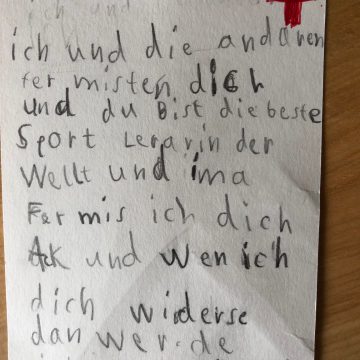 ich und
ich und die anderen
fer misten dich
und du Bist die beste
Sport Lerarin der
Wellt und ima
Fermis ich dich
Ak und wen ich
dich widerse
dan werde